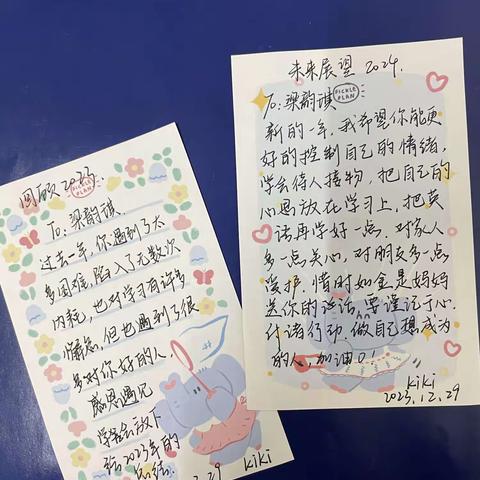 回顾2023
PICKLE
PLAN
To: 梁韵祺
过去一年,你遇到了太
多困难,陷入了无数次
内耗,也对学习有许多
懈怠,但也遇到了很
多对你好的人,
感恩遇见
学会放下
2023年的
总结.
29
kiki
未来展望 2024.
To: 梁韵祺
PICKLE
PLAN
新的一年,我希望你能更
好的控制自己的情绪,
学会待人接物,把自己的
心思放在学习上,把英
语再学好一点,对家人
多一点关心,对朋友多一点
爱护,惜时如金是妈妈
送你的话 要谨记于心.
付诸行动 做自己想成为
的人,加油!
kiki
2023.12.29